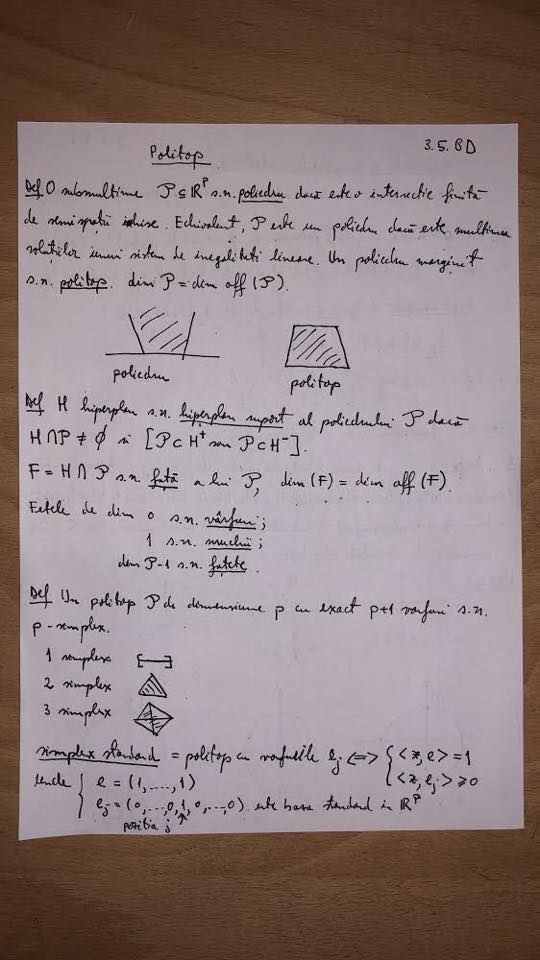 Politop
3.5.BD
Def O submultime P ⊆ ℝᵖ s.n. poliedru dacă este o intersectie finită
de semispatii inchise. Echivalent, P este un poliedru dacă este multimea
solutiilor unui sistem de inegalitati lineare. Un poliedru marginit
s.n. politop. dim P = dim aff (P).
poliedru
politop
Def H hiperplan s.n. hiperplan suport al poliedrului P dacă
H ∩ P ≠ ∅ si [P ⊂ H⁺ sau P ⊂ H⁻].
F = H ∩ P s.n. fată a lui P, dim (F) = dim aff (F).
Fetele de dim 0 s.n. vârfuri;
1 s.n. muchii;
dim P-1 s.n. fațete.
Def Un politop P de dimensiune p cu exact p+1 varfuri s.n.
p-simplex.
1 simplex
2 simplex
3 simplex
simplex standard = politop cu varfurile eⱼ <=> { <x, e> = 1
<x, eⱼ> ≥ 0
unde { e = (1,...,1)
eⱼ = (0,...,0,1,0,...,0) este baza standard in ℝᵖ
pozitia j